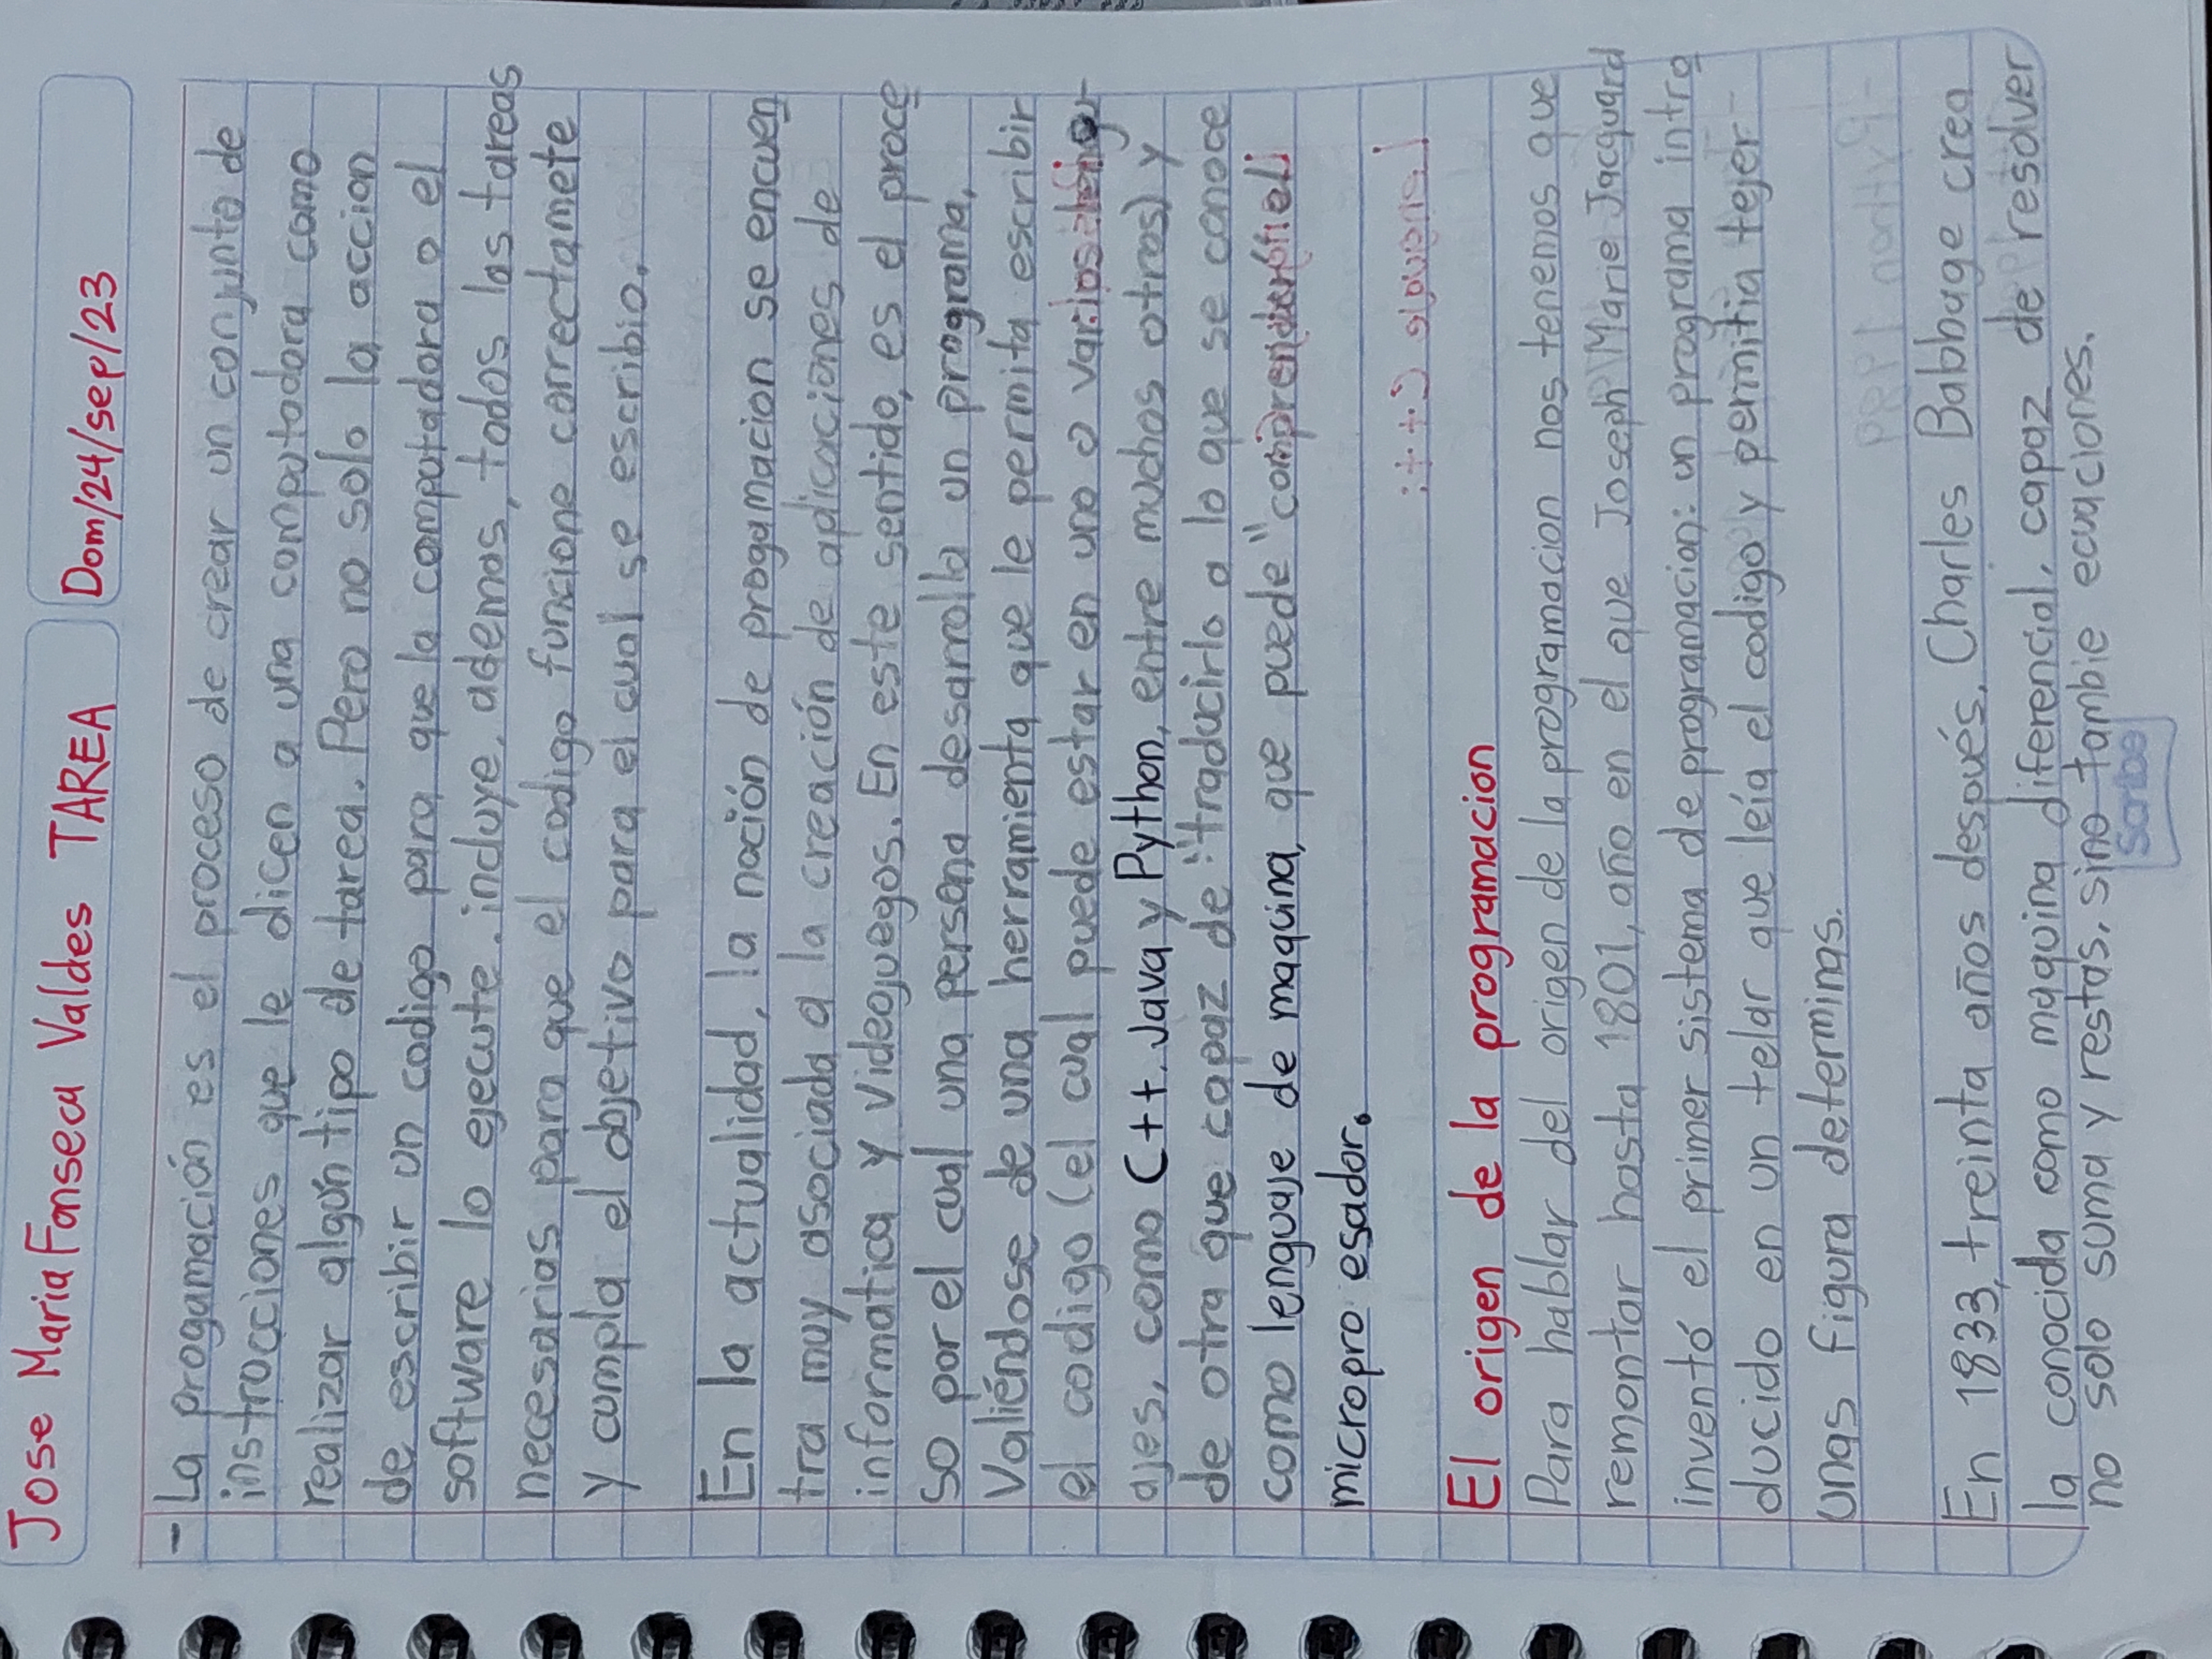 Jose Maria Fonseca Valdes TAREA
Dom/24/sep/23
- La progamación es el proceso de crear un conjunto de
instrucciones que le dicen a una computadora como
realizar algún tipo de tarea. Pero no solo la accion
de escribir un codigo para que la computadora o el
software lo ejecute, incluye, ademas, todas las tareas
necesarias para que el codigo funcione correctamete
y cumpla el objetivo para el cual se escribio.
En la actualidad, la noción de progamacion se encuen
tra muy asociada a la creación de aplicaciones de
informatica y videojuegos. En este sentido, es el proce
so por el cual una persona desarrolla un programa,
Valiéndose de una herramienta que le permita escribir
el codigo (el cual puede estar en uno o varios
ajes, como C++, Java y Python, entre muchos otros) y
de otra que capaz de "traducirlo a lo que se conoce
como lenguaje de maquina, que puede "comprender
micropro esador.
El origen de la programacion
Para hablar del origen de la programacion nos tenemos que
remontar hasta 1801, año en el que Joseph Marie Jacquard
inventó el primer sistema de programacion: un programa intro
ducido en un telar que leía el codigo y permitia tejer
unas figura determinas.
En 1833, treinta años después, Charles Babbage crea
la conocida como maquina diferencial, capaz de resolver
no solo suma y restas, sino tambie ecuaciones.
Scribe